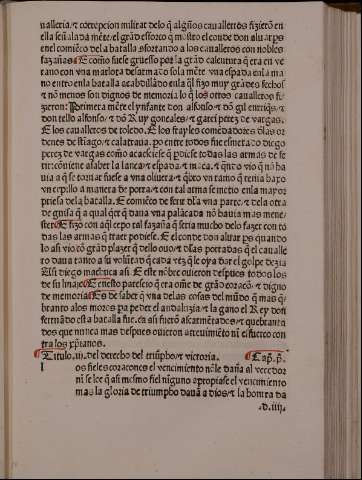 uallería/τ correpcion militar delo q̃ algũos caualleros fizierõ en
ella señalada mẽte/el grãd esforço q̃ mostro el conde don aluar ps
enel comiẽço dela batalla esforçando a los caualleros con nobles
fazañas/ E como fuese grueso por la grãd calentura q̃ era en ve
rano con vna marlota desarmado sola mẽte vna espada en la ma
no entro enla batalla acabdillado enla q̃l fizo muy grãdes fechos
τ nõ menos son dignos de memoria lo q̃ los otros caualleros fi
zieron: Primera mẽte el ynfante don alfonso/τ dõ gil enrriq̃s/τ
don tello alfonso/τ dõ Ruy gonçales/τ garci perez de vargas.
E los caualleros de toledo. E los frayles comẽdadores dlas or
denes de stiago/τ calatraua. po entre todos fue esmerado diego
perez de vargas como acaeciese q̃ pdiese todas las armas de se
rir conuiene a saber la lança τ espada τ maça. τ quãdo vio q̃ nõ ha
uia a q̃ se tornar fuese a vna oliuera τ qbro vn ramo q̃ tenia bapo
vn cepillo a manera de porra/τ con tal arma se metio enla mayor
priesa dela batalla. E comiẽço de ferir dla vna parte/τ dela otra
de guisa q̃ a qual qer q̃ daua vna palacada nõ hauia mas mene/
ster E fizo con aql cepo tal fazaña q̃ seria mucho delo fazer con to
das las armas q̃ traer podiese. E el conde don aluar ps quando
lo asi vio cõ grãd plazer q̃ dello ouo/τ dlas porradas q̃ el caualle
ro daua tanto a su volũtad q̃ cada vez q̃ le oya dar el golpe dezia
Asi diego machuca asi E este nõbre ouieron despues todos los
de su linaje E enesto parescio q̃ era ome de grãd coraçõ/τ digno
de memoria E es de saber q̃ vna delas cosas del mũdo q̃ mas q̃
branto alos moros pa peder el andaluzia/τ la gano el Rey don
fernãdo esta batalla fue. ca asi fuerõ ascarmẽtados/τ quebranta
dos que nunca mas despues ouieron atreuimiẽto ni esfuerço con
tra los xp̃ianos.
Titulo .iij. del derecho del triũpho/τ victoria. Cap̃. p̃.
l os fieles coraçones el vencimiento nõ le daña al vecedor
ni se lee q̃ asi mesmo fiel ninguno apropiase el vencimiento
mas la gloria de triumpho dauã a dios/τ la honrra da
.d.iiij.